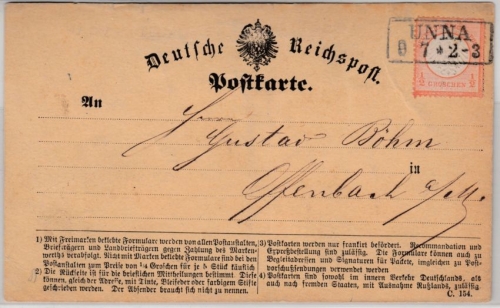 UNNA
D 7 * 2-3
Deutsche Reichspost.
Postkarte.
½ GROSCHEN ½
An
H. Gustav Böhm
in
Offenbach a/M.
1) Mit Freimarken beklebte Formulare werden von allen Postanstalten,
Briefträgern und Landbriefträgern gegen Zahlung des Marken-
werths verabfolgt. Nicht mit Marken beklebte Formulare sind bei den
Postanstalten zum Preise von ¼ Groschen für je 5 Stück käuflich
2) Die Rückseite ist für die brieflichen Mittheilungen bestimmt. Diese
können, gleich der Adresse, mit Tinte, Bleifeder oder farbigem Stifte
geschrieben werden. Der Absender braucht sich nicht zu nennen.
3) Postkarten werden nur frankirt befördert. Recommandation und
Expreßbestellung sind zulässig. Die Formulare können auch zu
Begleitadressen und Signaturen für Packete, imgleichen zu Post-
vorschußsendungen verwendet werden
4) Postkarten sind sowohl im innern Verkehr Deutschlands, als
auch nach fremden Staaten, mit Ausnahme Rußlands, zulässig.
C. 154.